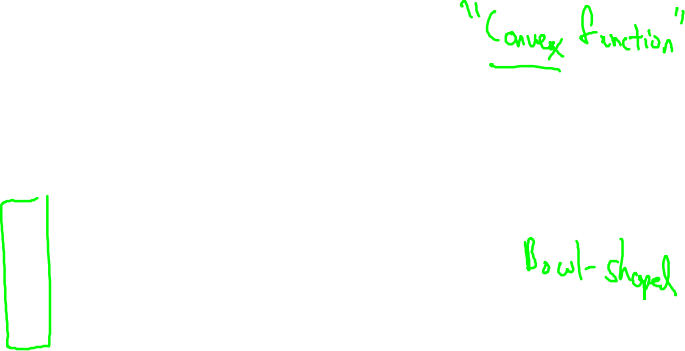 "Convex function"
Bowl-shaped